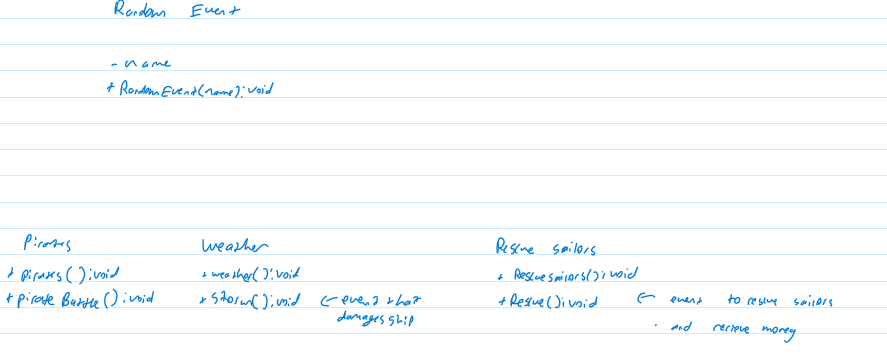 Random Event
- name
+ RandomEvent(name): void
Pirates
+ pirates(): void
+ pirate Battle(): void
weather
+ weather(): void
+ Storm(): void ← event that
damages ship
Rescue sailors
+ Rescuesailors(): void
+ Rescue(): void ← event to rescue sailors
. and recieve money